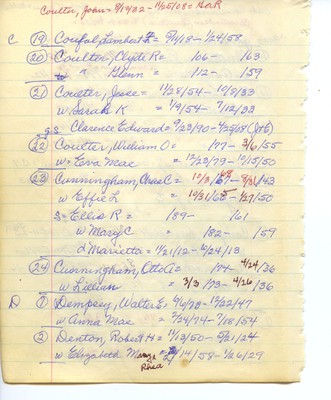 Coulter, John = 9/19/32 - 11/25/08 =
C (19) Confal, Lambert F. = 9/19/18 - 1/24/58
(20) Coulter, Clyde R = 106 - 163
" Glenn = 112 - 159
(21) Coulter, Jesse = 11/28/54 - 10/8/33
w Sarah K = 1/9/54 - 7/12/33
gs Clarence Edward = 9/23/90 - 4/25/58
(22) Coulter, William O = 177 - 3/6/55
w = Eva Mae = 12/23/79 - 10/15/50
(23) Cunningham, C = 10/3/ - 8/31/43
w Effie L = 10/31/65 - 1/27/50
s = Ellis R = 189 - 161
w Mary C = 182 - 159
d Marietta = 11/21/12 - 6/24/13
(24) Cunningham, Otto = 174 - 4/24/36
w Lillian = 3/3/73 - 4/26/36
D (1) Dempsey, Walter E. 6/6/78 - 12/22/47
w Anna Mae = 2/24/74 - 7/18/54
(2) Denton, Robert H = 11/13/50 - 5/21/24
w Elizabeth 2/14/59 - 1/26/29
Rhea